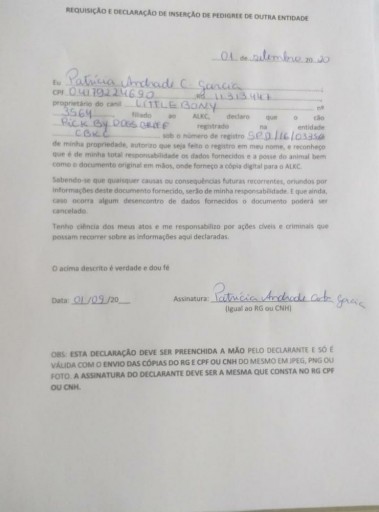 REQUISIÇÃO E DECLARAÇÃO DE INSERÇÃO DE PEDIGREE DE OUTRA ENTIDADE
01 de setembro de 20
Eu Patrícia Andrade C. Garcia
CPF 04179224690 11.313.447
proprietário do canil LITTLE BONY nº
3564 filiado ao ALKC, declaro que o cão
registrado na entidade
CBKC sob o número de registro
de minha propriedade, autorizo que seja feito o registro em meu nome, e reconheço
que é de minha total responsabilidade os dados fornecidos e a posse do animal bem
como o documento original em mãos, onde forneço a cópia digital para o ALKC.
Sabendo-se que quaisquer causas ou consequências futuras recorrentes, oriundos por
informações deste documento fornecido, serão de minha responsabilidade. E que ainda,
caso ocorra algum desencontro de dados fornecidos o documento poderá ser
cancelado.
Tenho ciência dos meus atos e me responsabilizo por ações cíveis e criminais que
possam recorrer sobre as informações aqui declaradas.
O acima descrito é verdade e dou fé
Data: 01/09/20__ Assinatura: Patrícia Andrade Garcia
(Igual ao RG ou CNH)
OBS: ESTA DECLARAÇÃO DEVE SER PREENCHIDA A MÃO PELO DECLARANTE E SÓ É
VÁLIDA COM O ENVIO DAS CÓPIAS DO RG E CPF OU CNH DO MESMO EM JPEG, PNG OU
FOTO. A ASSINATURA DO DECLARANTE DEVE SER A MESMA QUE CONSTA NO RG CPF
OU CNH.